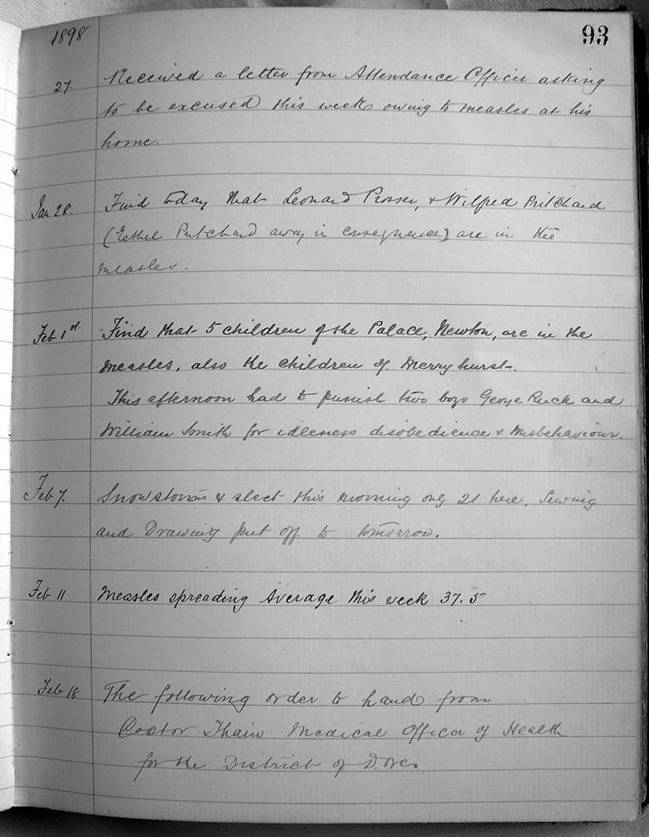 1898
93
27. Received a letter from Attendance Officer asking
to be excused this week owing to measles at his
home.
Jan 28. Find today that Leonard Prosser, & Wilfred Pritchard
(Ethel Pritchard away in consequence) are in the
measles.
Feb 1st Find that 5 children of the Palace, Newton, are in the
measles, also the children of Merryhurst.
This afternoon had to punish two boys George Ruck and
William Smith for idleness disobedience & misbehaviour.
Feb 7. Snowstorm & sleet this morning only 21 here. Sewing
and Drawing put off to tomorrow.
Feb 11 Measles spreading Average this week 37.5
Feb 18 The following order to hand from
Doctor Thain Medical Officer of Health
for the District of Dore.